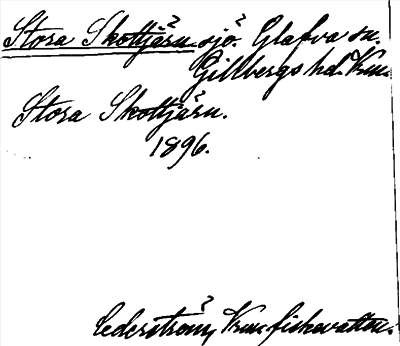 Stora Skottjärn. sjö. Glafva sn.
Gillbergs hd. Vrm.
Stora Skottjärn.
1896.
Cederström, Vrm fiskevatten.